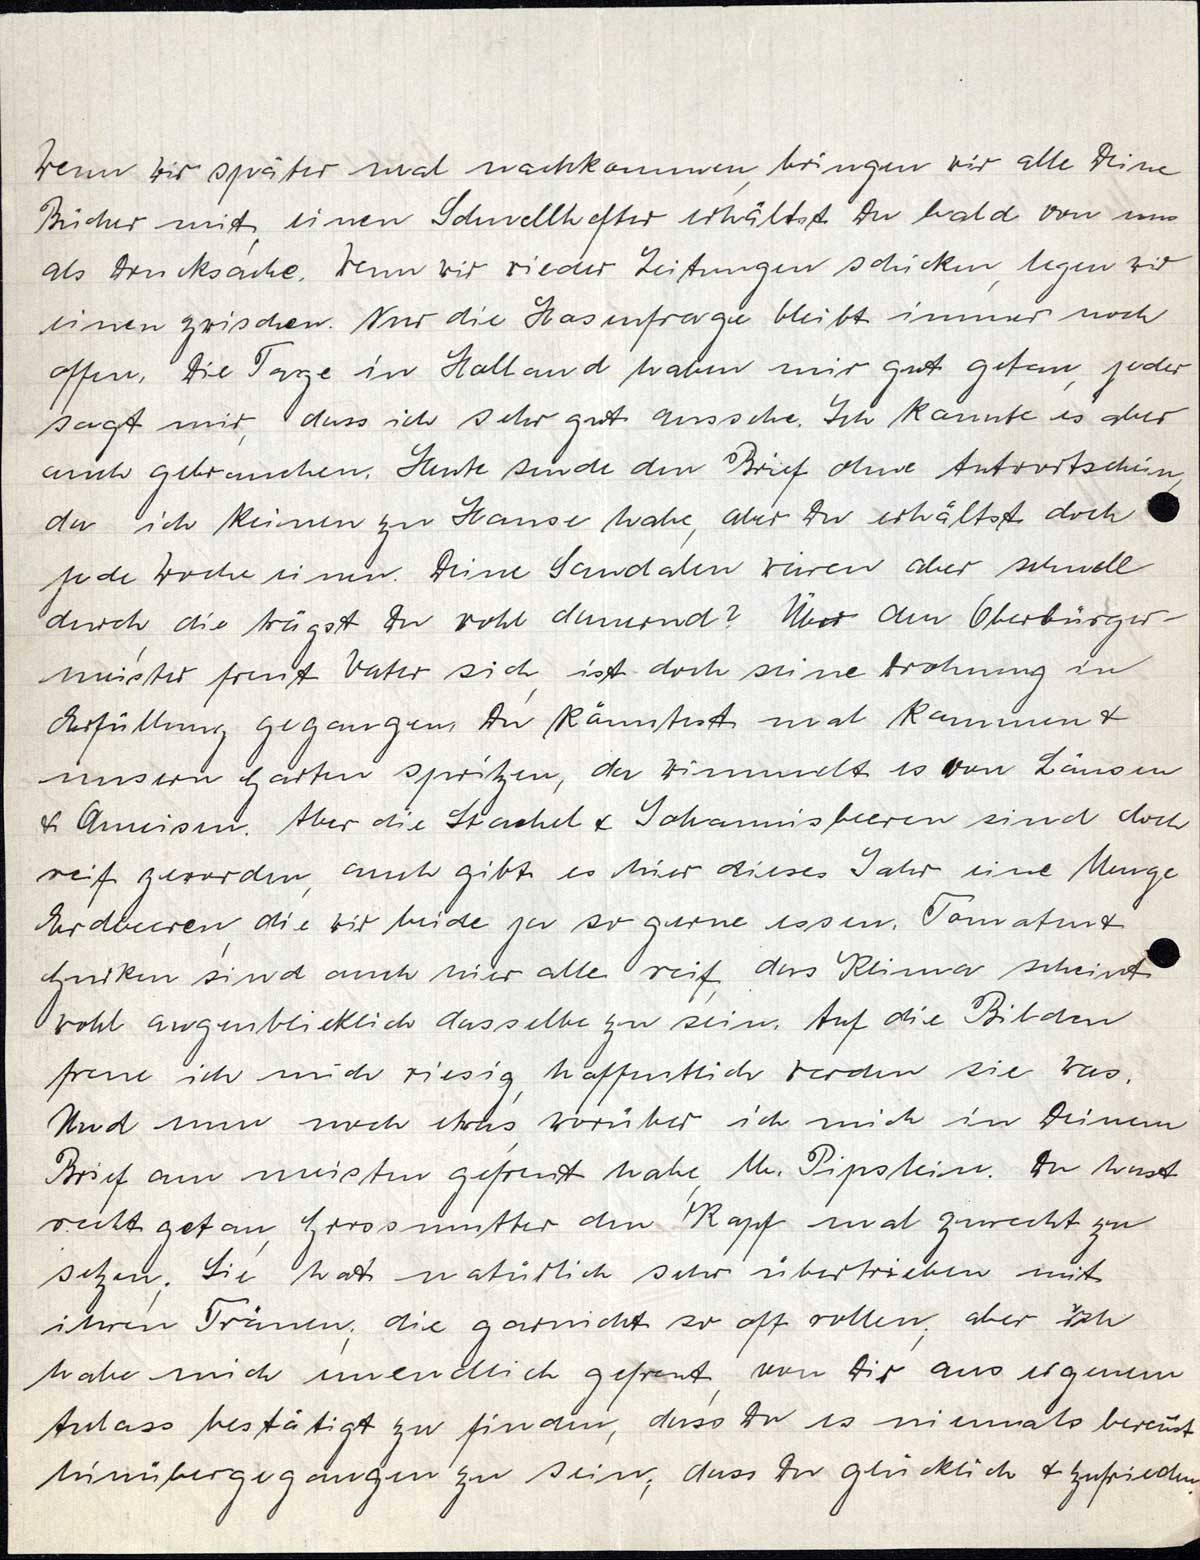 Wenn wir später mal nachkommen, bringen wir alle Deine
Bücher mit, einen Schnellhefter erhältst Du bald von uns
als Drucksache. Wenn wir wieder Zeitungen schicken, legen wir
einen zwischen. Nur die Hosenfrage bleibt immer noch
offen. Die Tage in Holland haben mir gut getan, jeder
sagt mir, dass ich sehr gut aussehe. Ich konnte es aber
auch gebrauchen. Heute sende den Brief ohne Antwortschein,
da ich keinen zu Hause habe, aber Du erhältst doch
jede Woche einen. Deine Sandalen waren aber schnell
durch, die trägst Du wohl dauernd? Über den Oberbürger-
meister freut Vater sich, ist doch seine Drohnung in
Erfüllung gegangen. Du könntest mal kommen &
unsern Garten spritzen, da wimmelt es von Läusen
& Ameisen. Aber die Stachel & Johannisbeeren sind doch
reif geworden, auch gibt es hier dieses Jahr eine Menge
Erdbeeren, die wir beide ja so gerne essen. Tomaten &
Gurken sind auch hier alle reif, das Klima scheint
wohl augenblicklich dasselbe zu sein. Auf die Bilder
freue ich mich riesig, hoffentlich werden sie was.
Und nun noch etwas, worüber ich mich in Deinem
Brief am meisten gefreut habe, Mr. Pipstein. Du hast
recht getan, Grossmutter den Kopf mal zurecht zu
setzen. Sie hat natürlich sehr übertrieben mit
ihren Tränen, die garnicht so oft rollen, aber ich
habe mich unendlich gefreut, von Dir aus eigenem
Anlass bestätigt zu finden, dass Du es niemals bereust
hinübergegangen zu sein, dass Du glücklich & zufrieden